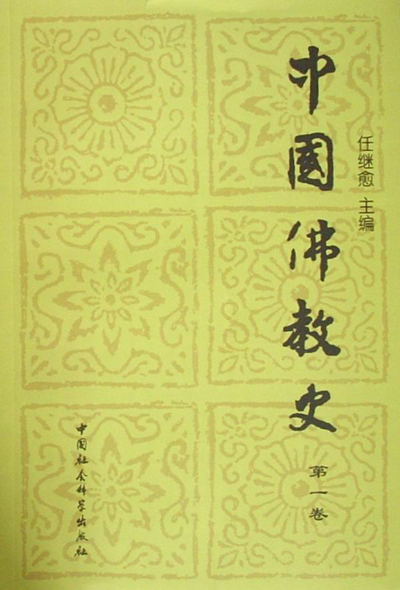 任继愈 主编
中國佛教史
第一卷
中国社会科学出版社